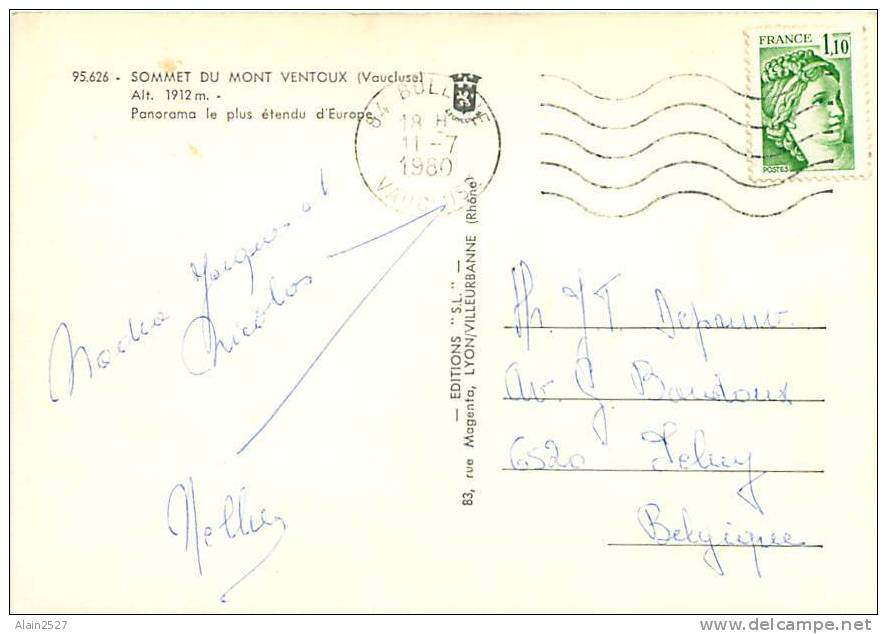 95.626 - SOMMET DU MONT VENTOUX (Vaucluse)
Alt. 1912 m. -
Panorama le plus étendu d'Europe
84 BOLLENE
18 H
11 -7
1980
VAUCLUSE
FRANCE 1,10
POSTES
Nadia Jacques et
Nicolas
Nelly
— EDITIONS "S.L." —
83, rue Magenta, LYON/VILLEURBANNE (Rhône)
Av. G. Bandoux
6520 Feluy
Belgique
Alain2527
delcampe.net